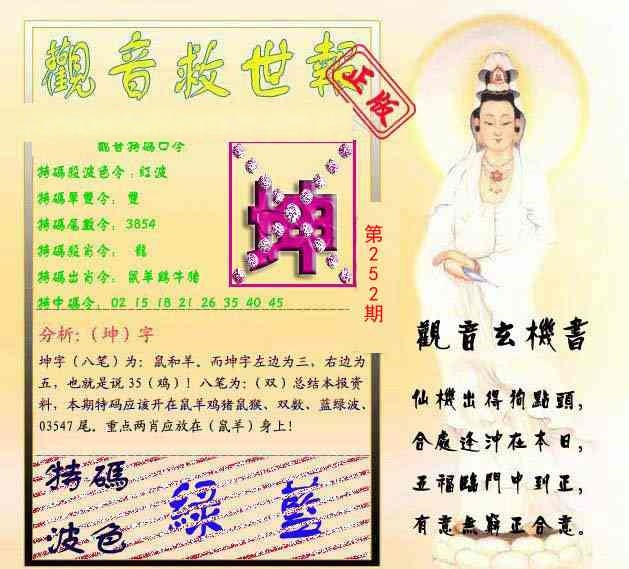 觀音救世報
正版
觀音特碼口令
特碼段波色令：红波
特碼單雙令： 雙
特碼尾數令： 3854
特碼段肖令： 龍
特碼出肖令： 鼠羊鷄牛豬
特中碼令： 02 15 18 21 26 35 40 45
坤
第252期
分析：（坤）字
坤字（八笔）为：鼠和羊。而坤字左边为三，右边为
五，也就是说 35（鸡）！八笔为：（双）总结本报资
料，本期特码应该开在鼠羊鸡猪鼠猴、双数、蓝绿波、
03547 尾。重点两肖应放在（鼠羊）身上！
特碼
波色
綠 藍
觀音玄機書
仙機出得狗點頭，
合處逢沖在本日，
五福臨門中到正，
有意無辭正合意。